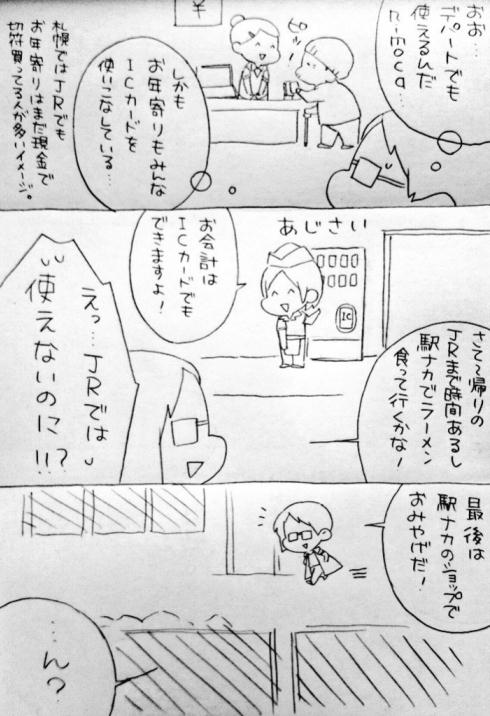 おお…
デパートでも
使えるんだ
nimoca…
¥
ピッ!
しかも
お年寄りもみんな
ICカードを
使いこなしている…
札幌ではJRでも
お年寄りはまだ現金で
切符買ってる人が多いイメージ。
さて〜帰りの
JRまで時間あるし
駅ナカでラーメン
食って行くかな!
あじさい
IC
お会計は
ICカードでも
できますよ!
えっ…JRでは
使えないのに!!?
最後は
駅ナカのショップで
おみやげだ!
…ん?